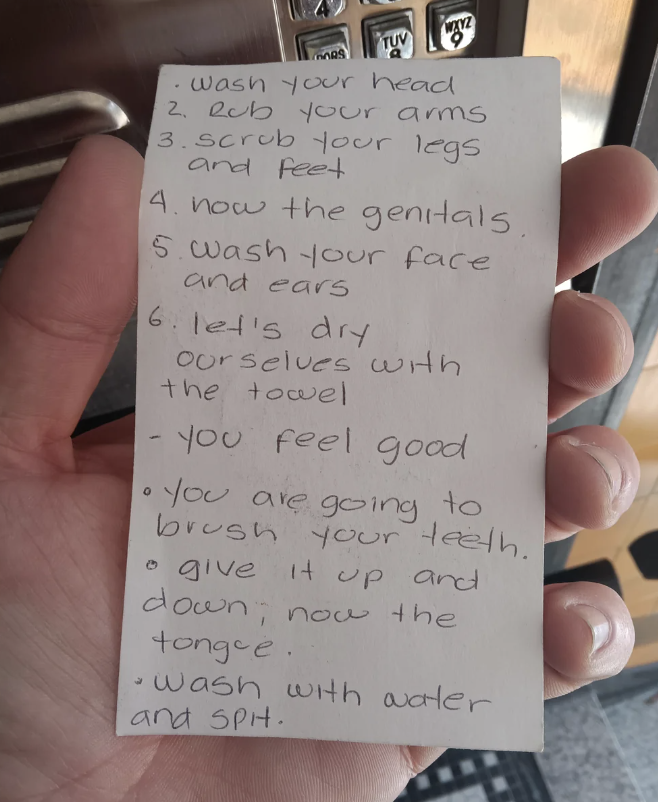 4
PQRS
TUV
8
WXYZ
9
. wash your head
2. Rub your arms
3. scrub your legs
and feet
4. now the genitals.
5. wash your face
and ears
6. let's dry
ourselves with
the towel
- you feel good
• you are going to
brush your teeth.
• give it up and
down; now the
tongue.
• wash with water
and spit.